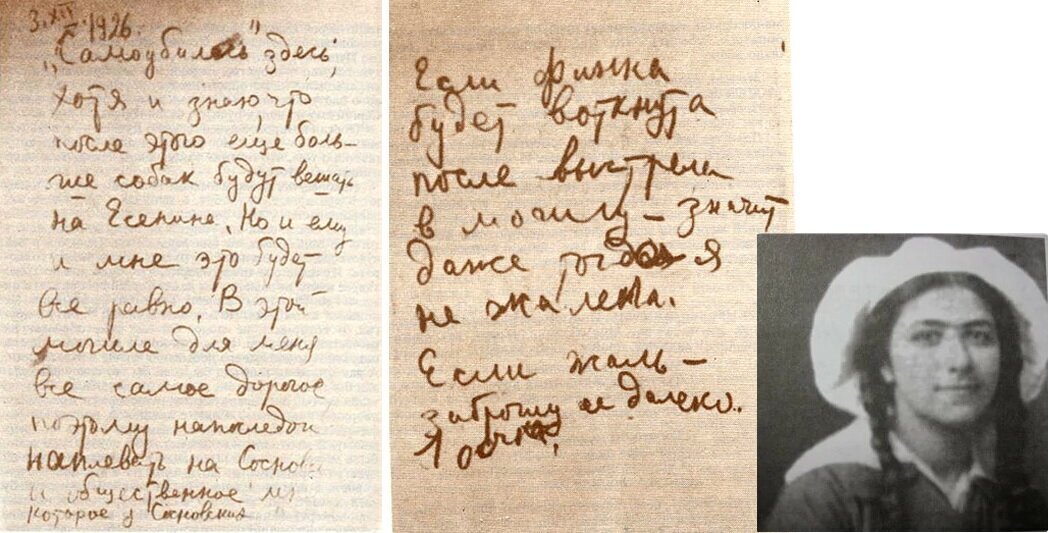 3.XII.1926.
„Самоубилась" здесь,
хотя и знаю, что
после этого еще боль-
ше собак будут вешать
на Есенина. Но и ему
и мне это будет
все равно. В этой
могиле для меня
все самое дорогое,
поэтому напоследок
наплевать на Соснов
и общественное
которое у Сосновских
Если финка
будет воткнута
после выстрела
в могилу – значит
даже тогда я
не жалела.
Если жаль –
заброшу ее далеко..
1